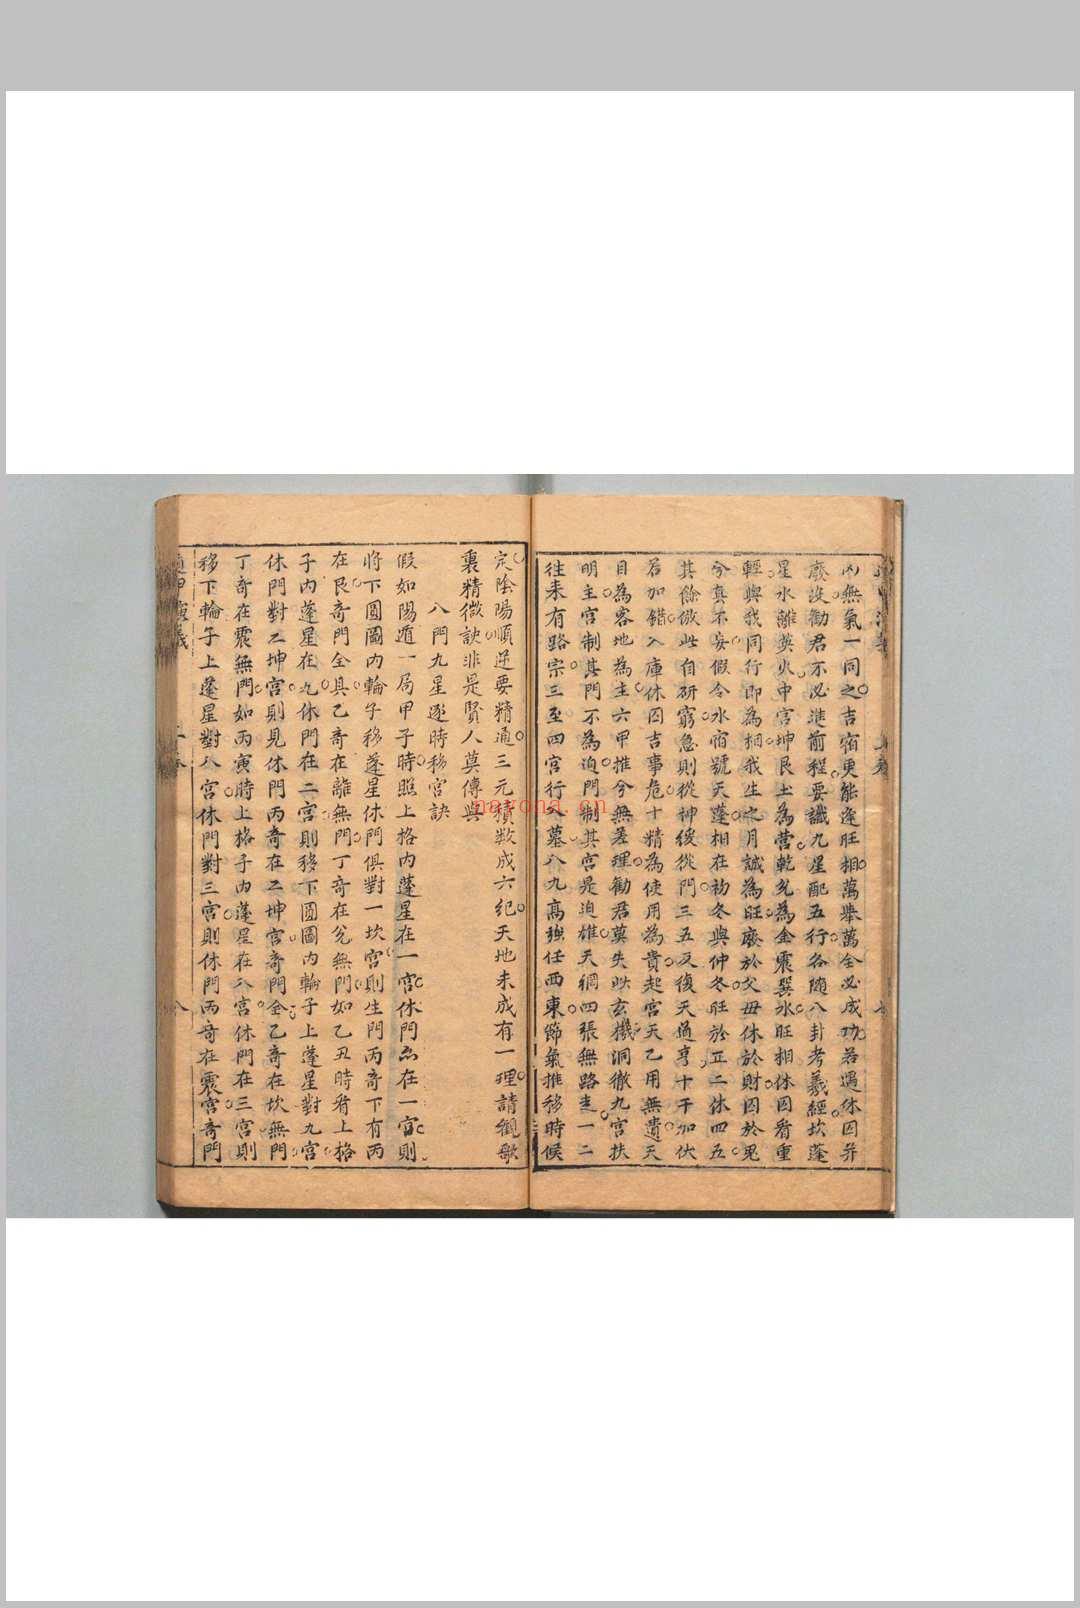 凶無氣一同之吉宿更能逢旺相萬舉萬全必成功若遇休囚并
廢沒勸君不必進前程要識九星配五行各隨八卦考羲經坎蓬
星水離英火中宮坤艮土為營乾兌為金震巽水旺相休囚看重
輕與我同行即為相我生之月誠為旺廢於父母休於財囚於鬼
兮真不妄假令水宿號天蓬相在初冬與仲冬旺於正二休四五
其餘倣此自研窮急則從神緩從門三五反復天通亨十干加伏
若加錯入庫休囚吉事危十精為使用為貴起宮天乙用無遺天
目為客地為主六甲推兮無差理勸君莫失此玄機洞徹九宮扶
明主宮制其門不為迫門制其宮是迫雄天網四張無路走一二
往來有路宗三至四宮行入墓八九高強任西東節氣推移時候
定陰陽順逆要精通三元積數成六紀天地未成有一理請觀歌
裏精微訣非是賢人莫傳與
八門九星逐時移宮訣
假如陽遁一局甲子時照上格內蓬星在一宮休門亦在一宮則
將下圓圖內輪子移蓬星休門俱對一坎宮則生門丙奇下有丙
在艮奇門全具乙奇在離無門丁奇在兌無門如乙丑時看上格
子內蓬星在九休門在二宮則移下圓圖內輪子上蓬星對九宮
休門對二坤宮則見休門丙奇在二坤宮奇門全乙奇在坎無門
丁奇在震無門如丙寅時上格子內蓬星在八宮休門在三宮則
移下輪子上蓬星對八宮休門對三宮則休門丙奇在震宮奇門
遁甲演義
八
nayona.cn